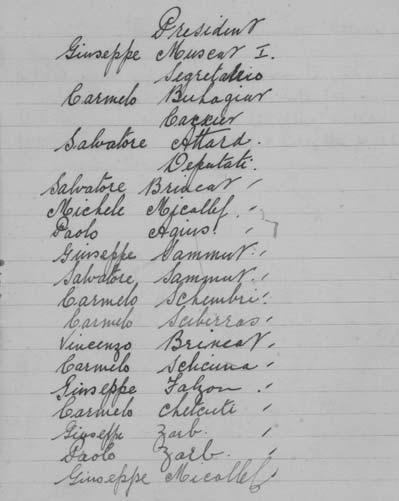 President
Giuseppe Muscat I.
Segretario
Carmelo Buhagiar
Caxxier
Salvatore Attard.
Deputati.
Salvatore Brincat
Michele Micallef.
Paolo Agius.
Giuseppe Sammut.
Salvatore Sammut.
Carmelo Schembri.
Carmelo Scibirras
Vincenzo Brincat.
Carmelo Scicluna
Giuseppe Falzon.
Carmelo Chetcuti
Giuseppe Zarb.
Paolo Zarb.
Giuseppe Micallef